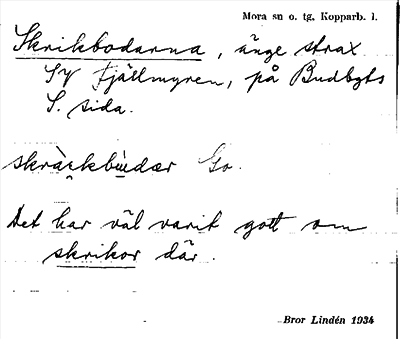 Mora sn o. tg. Kopparb. l.
Skrikbodarna, änge strax
SV Fjällmyren, på Budbyns
S. sida.
skràrkbùdær Go.
Det har väl varit gott om
skrikor där.
Bror Lindén 1934